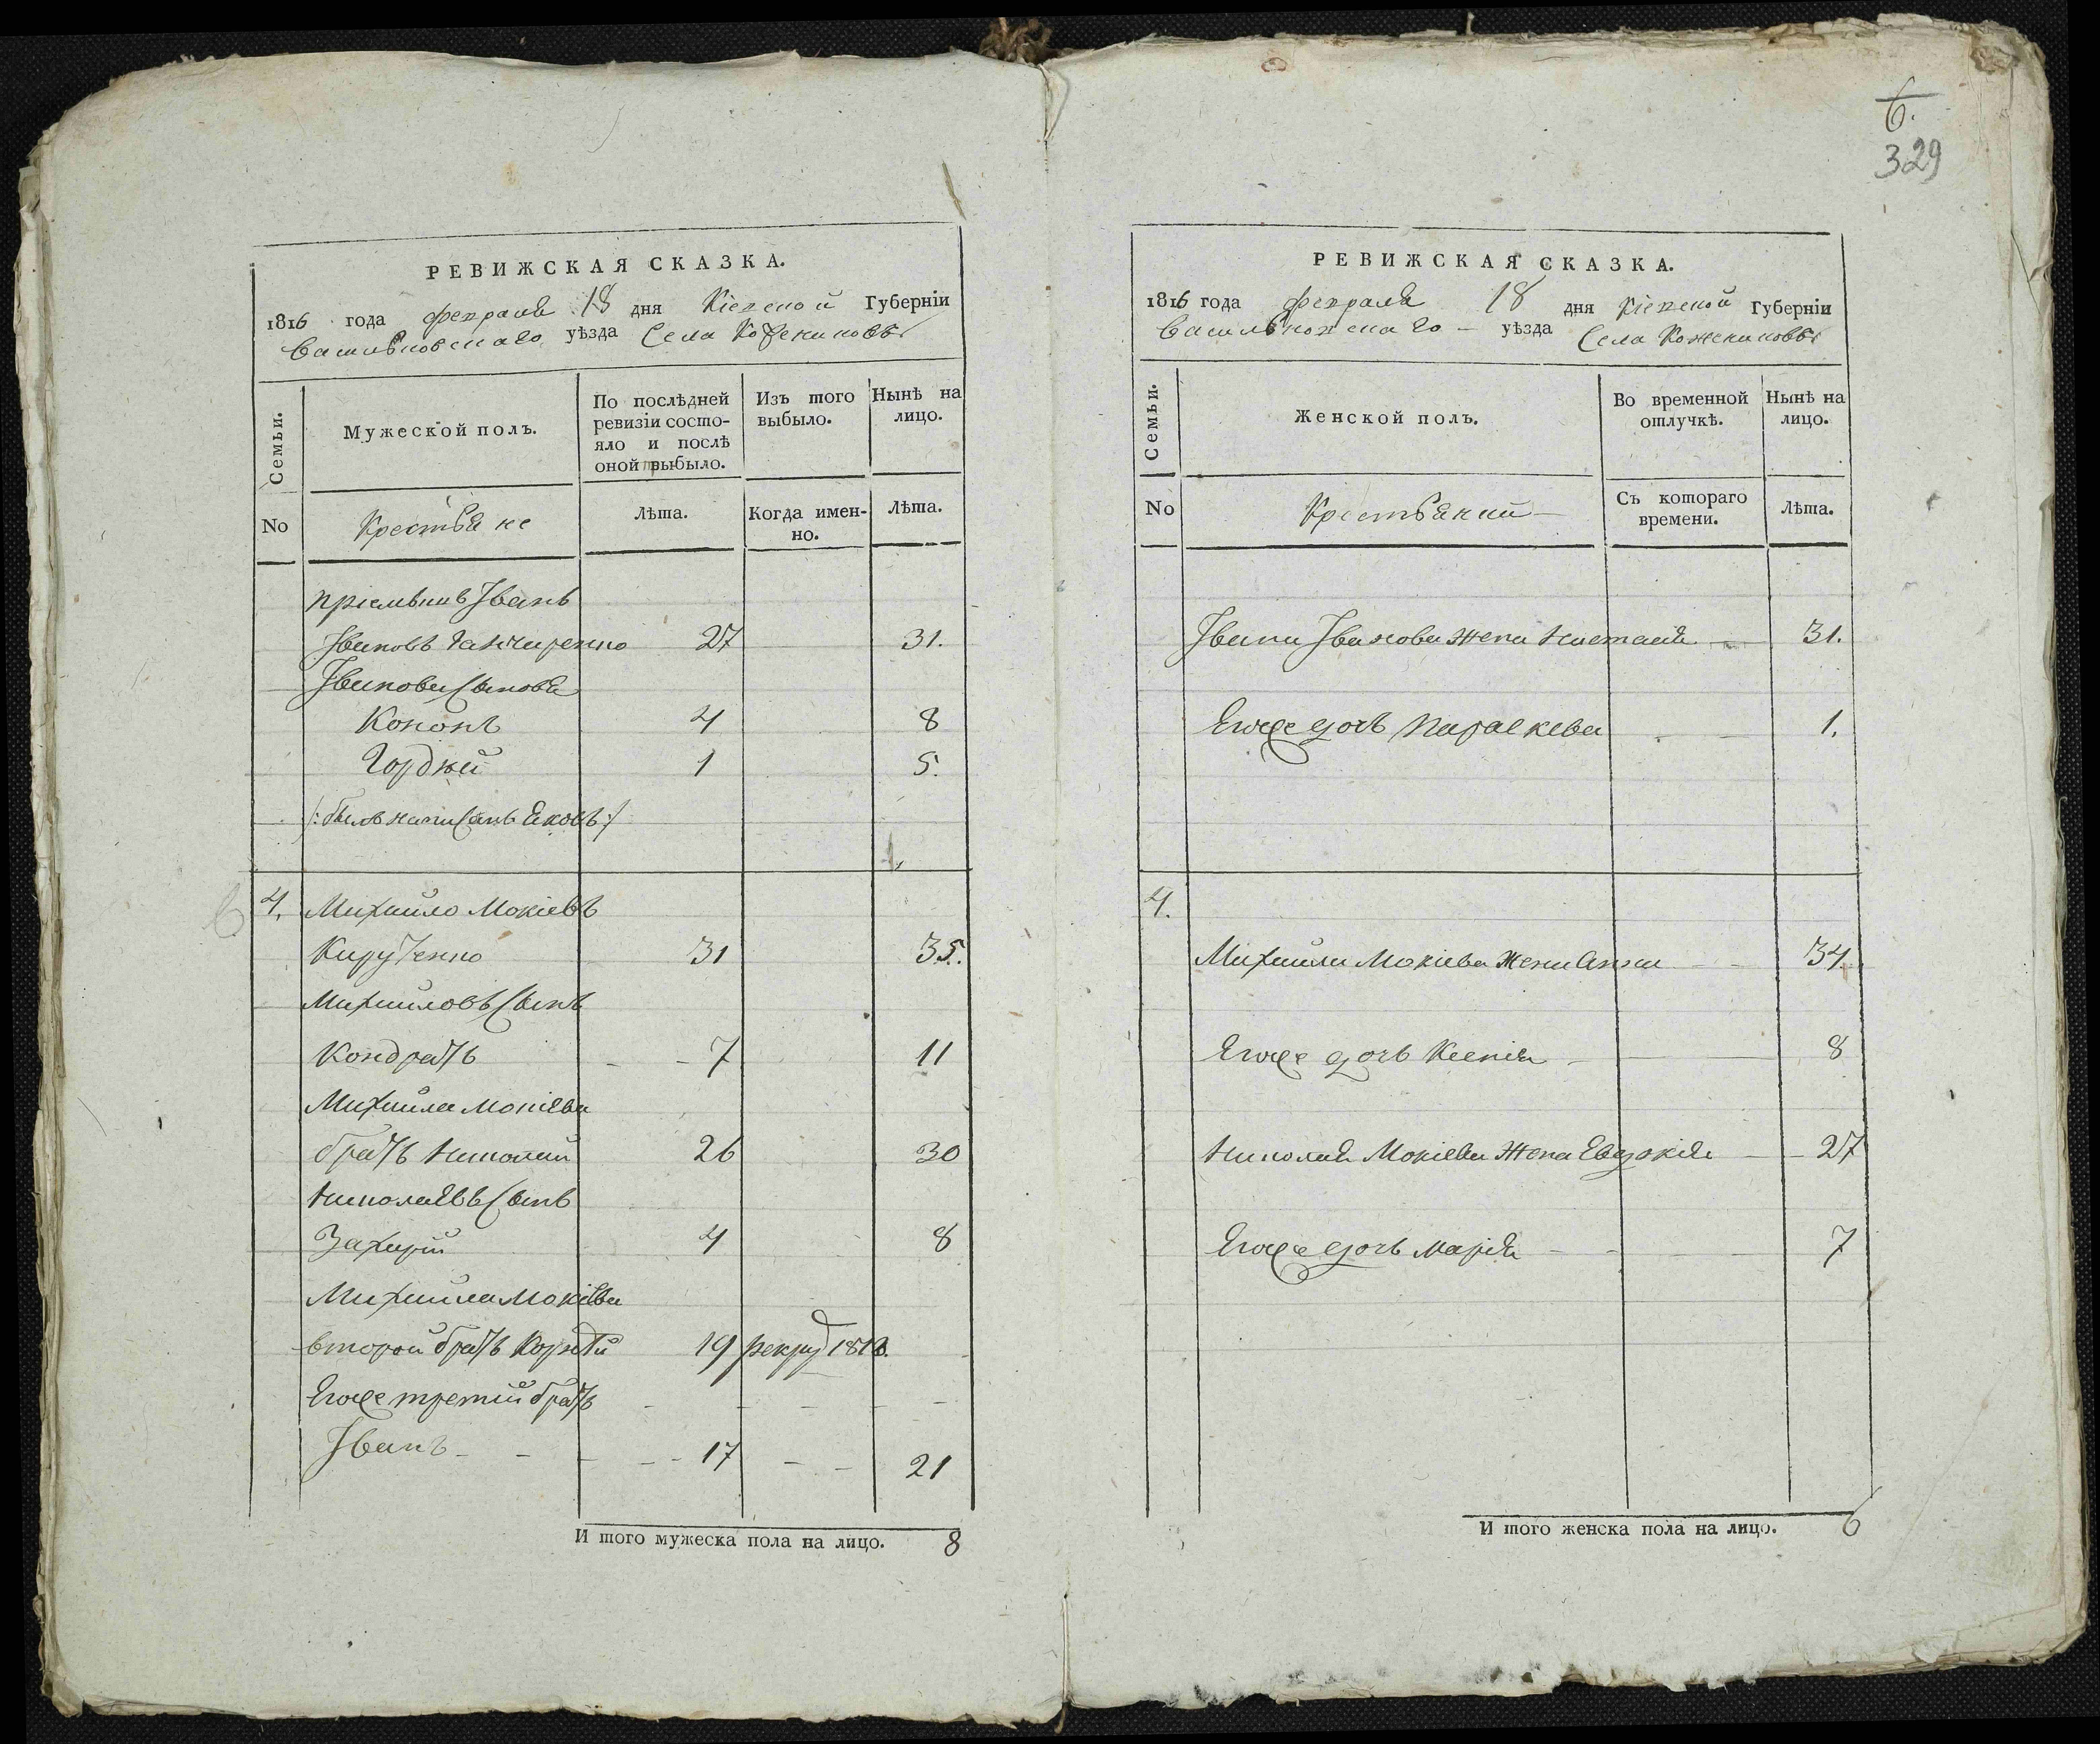 6.
329
РЕВИЖСКАЯ СКАЗКА.
1816 года февраля 18 дня Кіевской Губерніи
Васильковскаго уѣзда Села Кожениковъ
Семьи.
Мужеской полъ.
По послѣдней ревизіи состо-
яло и послѣ
оной выбыло.
Изъ того
выбыло.
Нынѣ на
лицо.
No
Крестьяне
Лѣта.
Когда имен-
но.
Лѣта.
пріемышъ Іванъ
Івановъ 27 31.
Іванови Сынове
Кононъ 4 8
Гордѣй 1 5.
/: былъ написанъ Яковъ :/
4. Михайло Мокіевъ
31 35.
Михайловъ Сынъ
Кондратъ 7 11
Михайла Мокіева
братъ Николай 26 30
Николаевъ Сынъ
Захарій 4 8
Михайла Мокіева
второй братъ Корнѣй 19 рекруд
Егоже третій братъ
Іванъ 17 21
И того мужеска пола на лицо. 8
РЕВИЖСКАЯ СКАЗКА.
1816 года февраля 18 дня Кіевской Губерніи
Васильковскаго уѣзда Села Кожениковъ
Семьи.
Женской полъ.
Во временной
отлучкѣ.
Нынѣ на
лицо.
No
Крестьянки
Съ котораго
времени.
Лѣта.
Івана Іванова Жена Настасія 31.
Егоже дочь Параскева 1.
4.
Михайла Мокіева Жена Анна 34.
Егоже дочь Ксенія 8
Николая Мокіева Жена Евдокія 27
Егоже дочь Марія 7
И того женска пола на лицо. 6